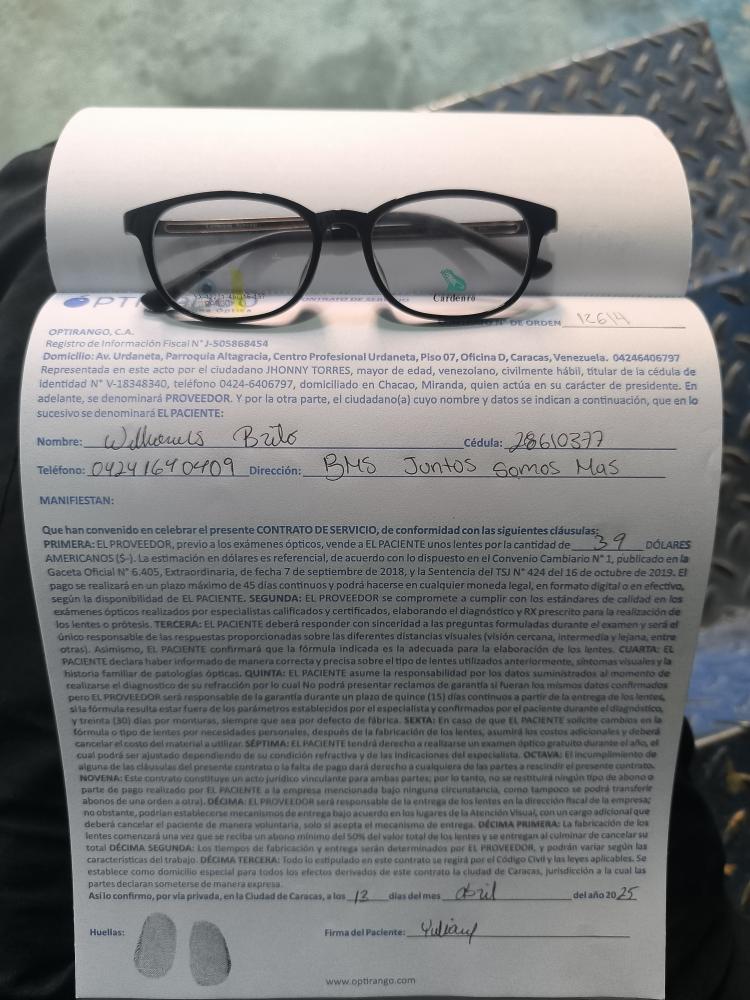 Cardenro
N° DE ORDEN 12614
OPTIRANGO, C.A.
Registro de Información Fiscal N°J-505868454
Domicilio: Av. Urdaneta, Parroquia Altagracia, Centro Profesional Urdaneta, Piso 07, Oficina D, Caracas, Venezuela. 04246406797
Representada en este acto por el ciudadano JHONNY TORRES, mayor de edad, venezolano, civilmente hábil, titular de la cédula de
identidad N° V-18348340, teléfono 0424-6406797, domiciliado en Chacao, Miranda, quien actúa en su carácter de presidente. En
adelante, se denominará PROVEEDOR. Y por la otra parte, el ciudadano(a) cuyo nombre y datos se indican a continuación, que en lo
sucesivo se denominará EL PACIENTE:
Nombre: Brito Cédula: 28610377
Teléfono: 04241640409 Dirección: BMS Juntos Somos Mas
MANIFIESTAN:
Que han convenido en celebrar el presente CONTRATO DE SERVICIO, de conformidad con las siguientes cláusulas:
PRIMERA: EL PROVEEDOR, previo a los exámenes ópticos, vende a EL PACIENTE unos lentes por la cantidad de 39 DÓLARES
AMERICANOS ($-). La estimación en dólares es referencial, de acuerdo con lo dispuesto en el Convenio Cambiario N° 1, publicado en la
Gaceta Oficial N° 6.405, Extraordinaria, de fecha 7 de septiembre de 2018, y la Sentencia del TSJ N° 424 del 16 de octubre de 2019. El
pago se realizará en un plazo máximo de 45 días continuos y podrá hacerse en cualquier moneda legal, en formato digital o en efectivo,
según la disponibilidad de EL PACIENTE. SEGUNDA: EL PROVEEDOR se compromete a cumplir con los estándares de calidad en los
exámenes ópticos realizados por especialistas calificados y certificados, elaborando el diagnóstico y RX prescrito para la realización de
los lentes o prótesis. TERCERA: EL PACIENTE deberá responder con sinceridad a las preguntas formuladas durante el examen y será el
único responsable de las respuestas proporcionadas sobre las diferentes distancias visuales (visión cercana, intermedia y lejana, entre
otras). Asimismo, EL PACIENTE confirmará que la fórmula indicada es la adecuada para la elaboración de los lentes. CUARTA: EL
PACIENTE declara haber informado de manera correcta y precisa sobre el tipo de lentes utilizados anteriormente, síntomas visuales y la
historia familiar de patologías ópticas. QUINTA: EL PACIENTE asume la responsabilidad por los datos suministrados al momento de
realizarse el diagnostico de su refracción por lo cual No podrá presentar reclamos de garantía si fueran los mismos datos confirmados
pero EL PROVEEDOR será responsable de la garantía durante un plazo de quince (15) días continuos a partir de la entrega de los lentes,
si la fórmula resulta estar fuera de los parámetros establecidos por el especialista y confirmados por el paciente durante el diagnóstico,
y treinta (30) días por monturas, siempre que sea por defecto de fábrica. SEXTA: En caso de que EL PACIENTE solicite cambios en la
fórmula o tipo de lentes por necesidades personales, después de la fabricación de los lentes, asumirá los costos adicionales y deberá
cancelar el costo del material a utilizar. SÉPTIMA: EL PACIENTE tendrá derecho a realizarse un examen óptico gratuito durante el año, el
cual podrá ser ajustado dependiendo de su condición refractiva y de las indicaciones del especialista. OCTAVA: El incumplimiento de
alguna de las cláusulas del presente contrato o la falta de pago dará derecho a cualquiera de las partes a rescindir el presente contrato.
NOVENA: Este contrato constituye un acto jurídico vinculante para ambas partes; por lo tanto, no se restituirá ningún tipo de abono o
parte de pago realizado por EL PACIENTE a la empresa mencionada bajo ninguna circunstancia, como tampoco se podrá transferir
abonos de una orden a otra). DÉCIMA: EL PROVEEDOR será responsable de la entrega de los lentes en la dirección fiscal de la empresa;
no obstante, podrían establecerse mecanismos de entrega bajo acuerdo en los lugares de la Atención Visual, con un cargo adicional que
deberá cancelar el paciente de manera voluntaria, solo si acepta el mecanismo de entrega. DÉCIMA PRIMERA: La fabricación de los
lentes comenzará una vez que se reciba un abono mínimo del 50% del valor total de los lentes y se entregan al culminar de cancelar su
total DÉCIMA SEGUNDA: Los tiempos de fabricación y entrega serán determinados por EL PROVEEDOR, y podrán variar según las
características del trabajo. DÉCIMA TERCERA: Todo lo estipulado en este contrato se regirá por el Código Civil y las leyes aplicables. Se
establece como domicilio especial para todos los efectos derivados de este contrato la ciudad de Caracas, jurisdicción a la cual las
partes declaran someterse de manera expresa.
Así lo confirmo, por vía privada, en la Ciudad de Caracas, a los 12 días del mes abril del año 2025
Huellas: Firma del Paciente:
www.optirango.com